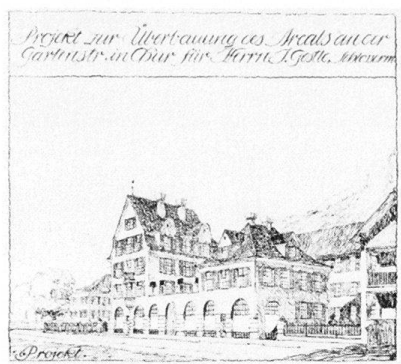 Projekt zur Überbauung des Areals an der
Gartenstr. in Chur für Herrn J. Gestle,
Projekt.